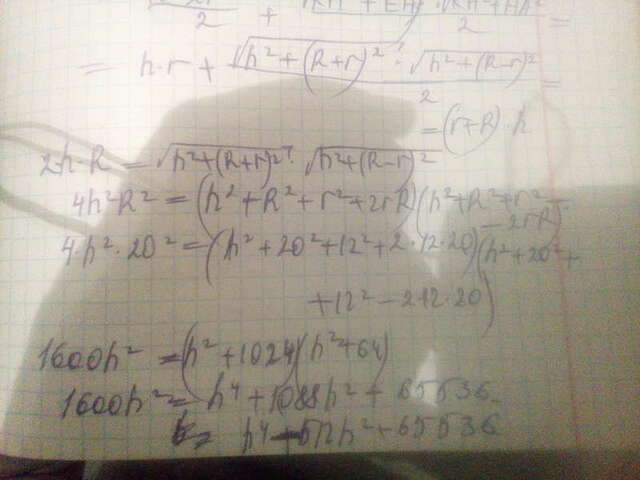 2 + 2 =
= h·r + √h²+(R+r)² · √h²+(R-r)² =
2
= (r+R)·h
2h·R = √h²+(R+r)² · √h²+(R-r)²
4h²R² = (h²+R²+r²+2rR)(h²+R²+r²-
- 2rR)
4·h²·20² = (h²+20²+12²+2·12·20)(h²+20²+
+12²-2·12·20)
1600h² = (h²+1024)(h²+64)
1600h² = h⁴+1088h²+65536
h⁴-512h²+65536